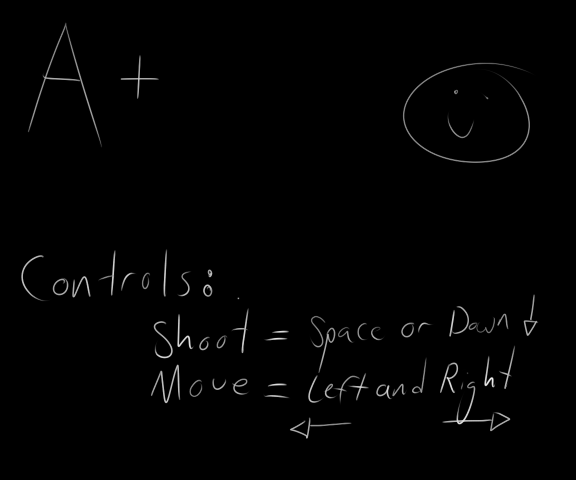 A+
Controls:
Shoot = Space or Down ↓
Move = Left and Right
← →